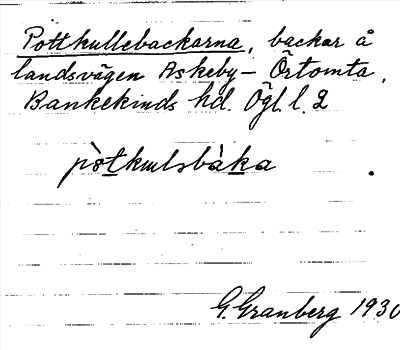 Pottkullebackarna, backar å
landsvägen Askeby - Örtomta,
Bankekinds hd. Ögl. l. 2
pòtkulsbàka
G. Granberg 1930